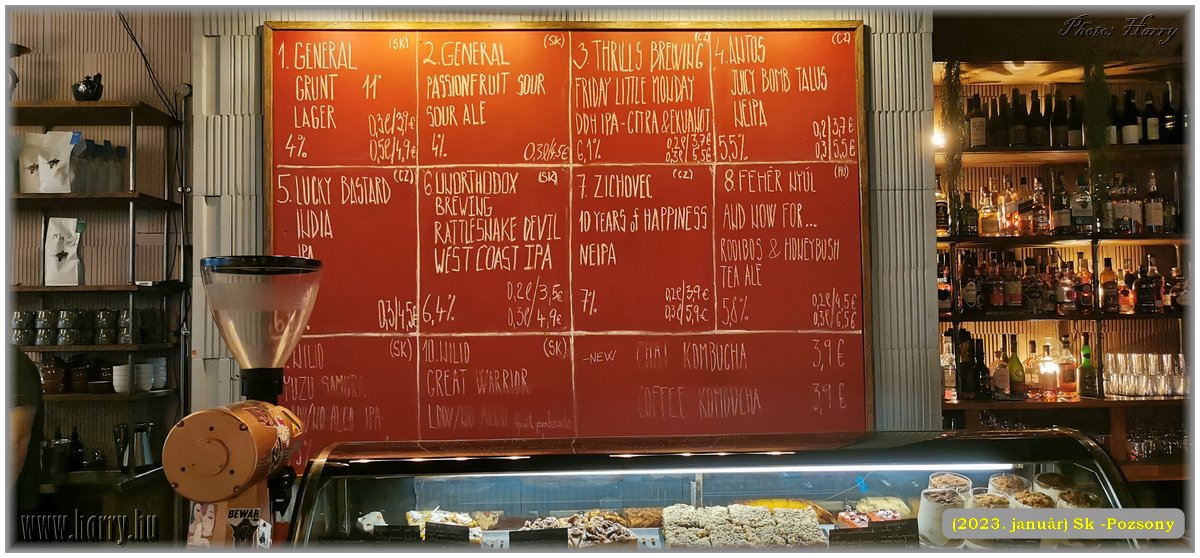 Photo: Harry
1. GENERAL (SK)
GRUNT 11°
LAGER
0,3ℓ/3,9€
4% 0,5ℓ/4,9€
2. GENERAL (SK)
PASSIONFRUIT SOUR
SOUR ALE
4% 0,3ℓ/4,5€
3. THRILLS BREWING (CZ)
FRIDAY LITTLE MONDAY
DDH IPA - CITRA & EKUANOT
6,1% 0,2ℓ/3,7€
0,3ℓ/5,5€
4. ANTOŠ (CZ)
JUICY BOMB TALUS
NEIPA
0,2/3,7€
5,5% 0,3/5,5€
5. LUCKY BASTARD (CZ)
INDIA
IPA
0,3/4,5€
6 UNORTHODOX (SK)
BREWING
RATTLESNAKE DEVIL
WEST COAST IPA
0,2ℓ/3,5€
6,4% 0,3ℓ/4,9€
7 ZICHOVEC (CZ)
10 YEARS of HAPPINESS
NEIPA
7% 0,2ℓ/3,9€
0,3ℓ/5,9€
8 FEHÉR NYÚL (HU)
AND NOW FOR...
ROOIBOS & HONEYBUSH
TEA ALE
5,8% 0,2ℓ/4,5€
0,3ℓ/6,5€
NILIO (SK)
YUZU SAMURAI
LOW/NO ALCO IPA
10. NILIO (SK)
GREAT WARRIOR
LOW/NO ALCO fruit pale ale
-NEW CHAI KOMBUCHA 3,9€
COFFEE KOMBUCHA 3,9€
BEWARE
www.harry.hu
(2023. január) Sk -Pozsony